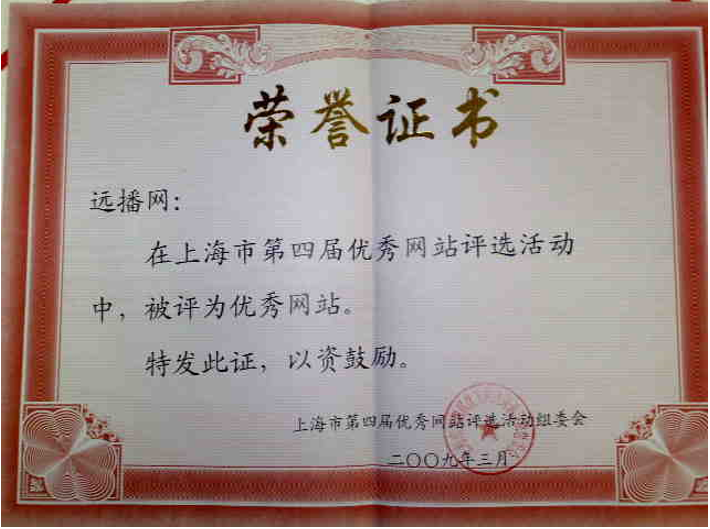 荣誉证书
远播网：
在上海市第四届优秀网站评选活动
中，被评为优秀网站。
特发此证，以资鼓励。
上海市第四届优秀网站评选活动组委会
二〇〇九年三月